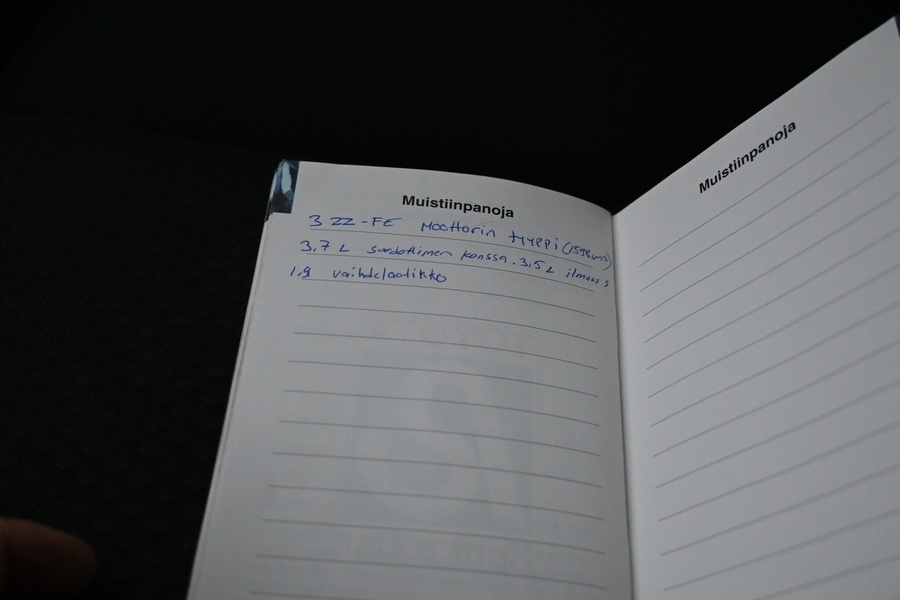 Muistiinpanoja
3 ZZ-FE Moottorin tyyppi (1598cm³)
3,7 L suodattimen kanssa. 3,5 L ilman s
1,9 vaihdelaatikko
Muistiinpanoja